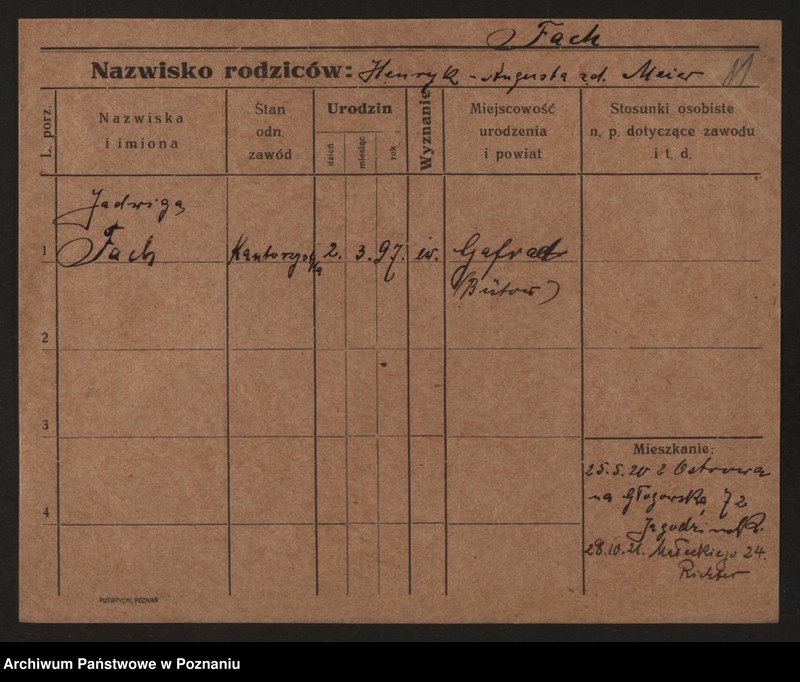 Fach
Nazwisko rodziców: Henryk - Augusta zd. Meier
L. porz.
Nazwiska
i imiona
Stan
odn.
zawód
Urodzin
dzień
miesiąc
rok
Wyznanie
Miejscowość
urodzenia
i powiat
Stosunki osobiste
n. p. dotyczące zawodu
i t. d.
Jadwiga
1 Fach Kantorzystka 2. 3. 97. ew.
(Bütow)
2
3
4
Mieszkanie:
25.5.20 z Ostrowa
na Głogowską 72
28.10.21. Małeckiego 24.
Richter
PUTIATYCKI, POZNAŃ
Archiwum Państwowe w Poznaniu